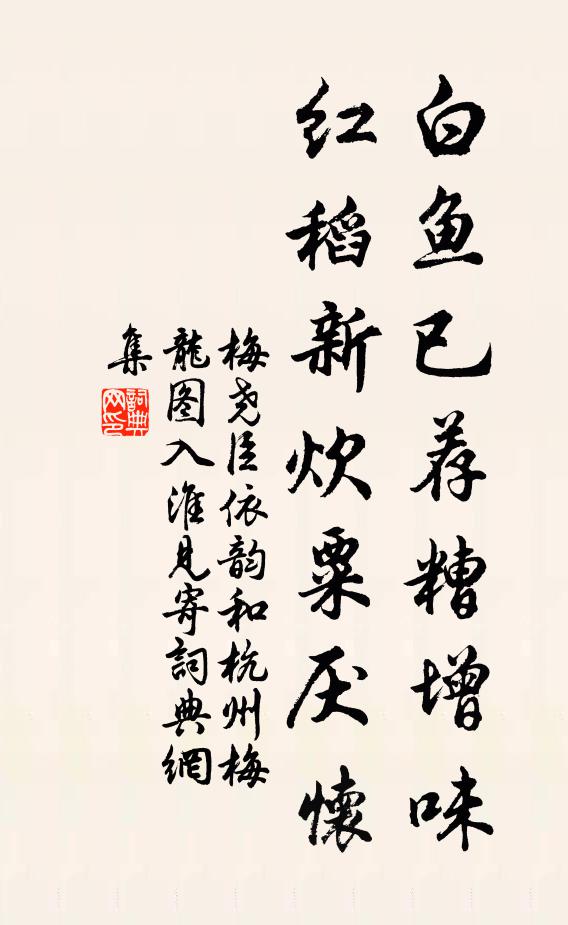 白鱼已荐糟增味
红稻新炊粟厌怀
梅尧臣依韵和杭州梅
龍图入淮见寄詞典網
集
詞典
网印